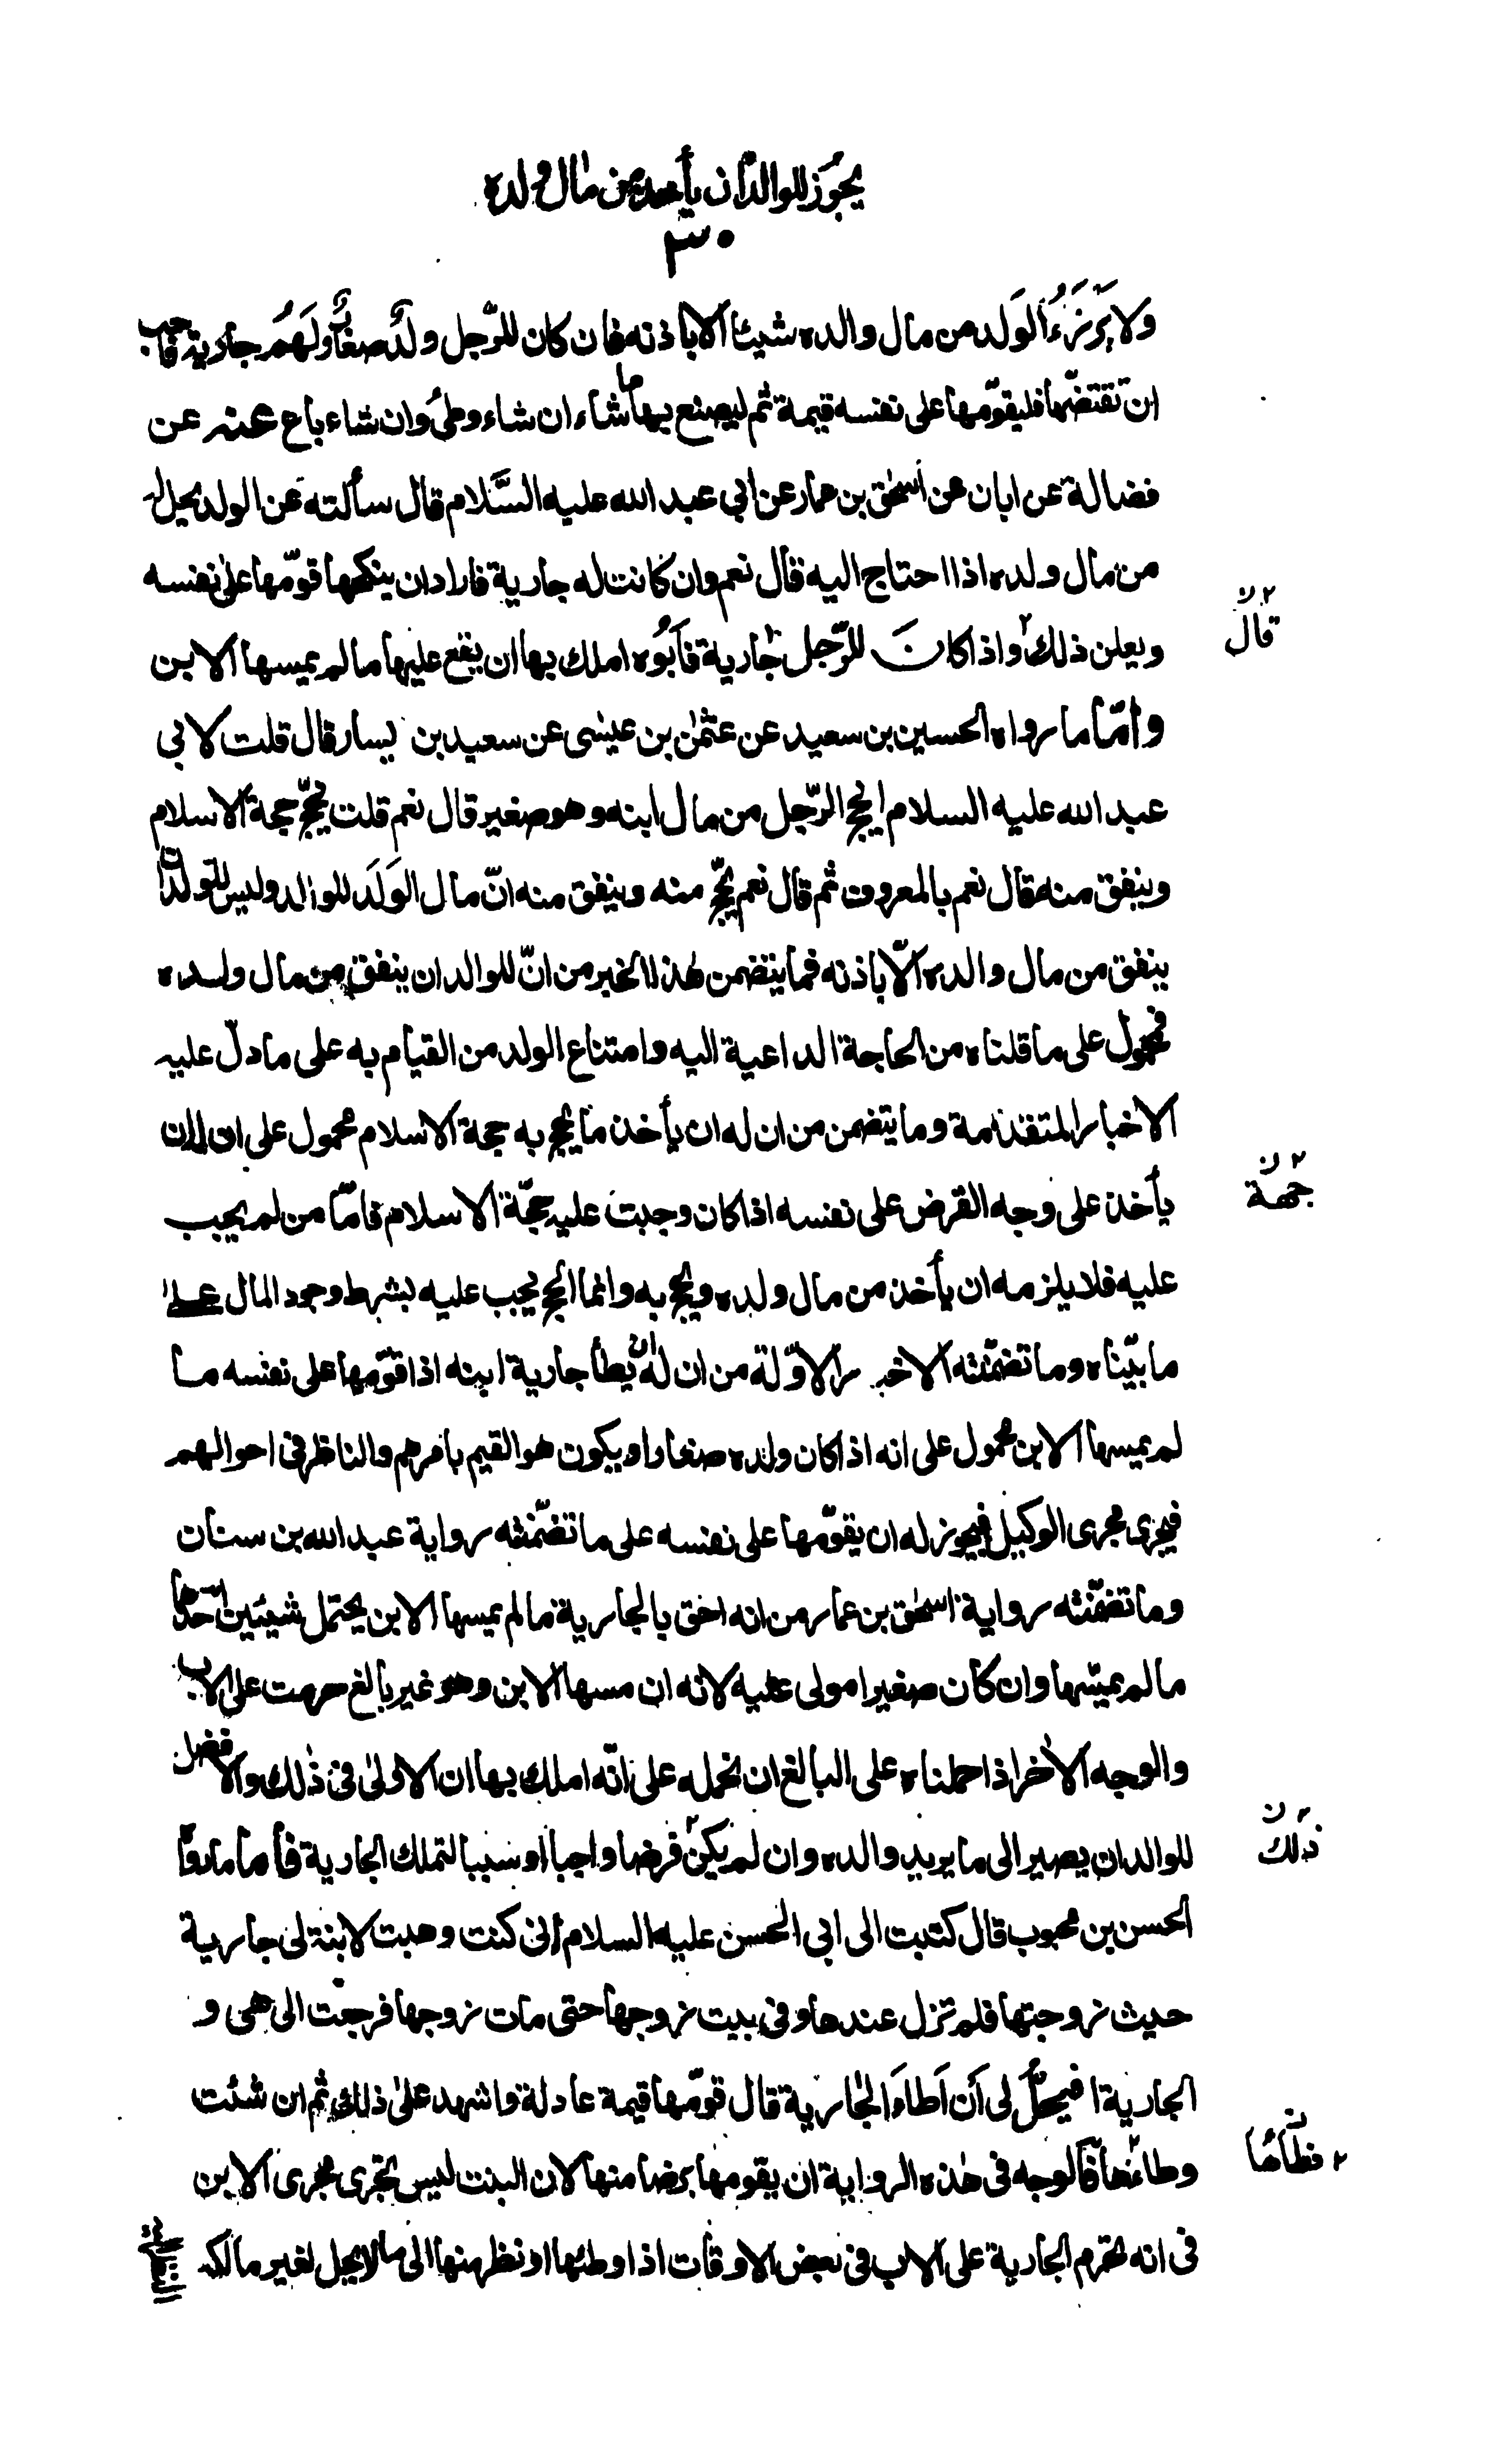 يجوز للوالد ان يأخذ من مال ولده
٣٠
ولا يَرْزَءُ الوَلد من مال والده شيئا الا باذنه فان كان للرّجل ولدٌ صغارٌ ولَهُم جارية فاحب
ان تقتضّها فليقوّمها على نفسه قيمة ثم ليصنع بها ما شاء ان شاء وطئ وان شاء باع عنه عن
فضالة عن ابان عن اسحٰق بن عمار عن ابي عبد الله عليه السَّلام قال سألته عن الوالد يحل له
من مال ولده اذا احتاج اليه قال نعم وان كانت له جارية فاراد ان ينكحها قوّمها على نفسه
ويعلن ذلك واذا كانَ للرّجل جارية فأبُوه املك بها ان يقع عليها ما لم يمسها الابن
قال ٢ ن
وامّا ما رواه الحسين بن سعيد عن عثمٰن بن عيسٰى عن سعيد بن يسار قال قلت لابي
عبد الله عليه السلام ايحج الرّجل من مال ابنه وهو صغير قال نعم قلت يحجّ حجة الاسلام
وينفق منه قال نعم بالمعروف ثم قال نعم يحجّ منه وينفق منه انّ مال الوَلَد للوالد وليس للولد ان
ينفق من مال والده الّا باذنه فما يتضمن هٰذا الخبر من انّ للوالد ان ينفق من مال ولده
فمحمول على ما قلناه من الحاجة الداعية اليه وامتناع الولد من القيام به على ما دلّ عليه
الاخبار المتقدّمة وما يتضمن من ان له ان يأخذ ما يحج به حجة الاسلام محمول على ان له ان
يأخذ على وجه القرض على نفسه اذا كان وجبت عليه حجّة الاسلام فامّا من لم يجب
جهة ٢ ن
عليه فلا يلزمه ان يأخذ من مال ولده ويحج به وانما الحج يجب عليه بشرط وجود المال على
ما بيّناه وما تضمّنته الاخبار الاوّلة من ان له ان يطأ جارية ابنه اذا قوّمها على نفسه ما
لم يمسها الابن محمول على انه اذا كان ولده صغارا ويكون هو القيم بامرهم والناظر فى احوالهم
فيجرى مجرى الوكيل فيجوز له ان يقوّمها على نفسه على ما تضمّنته رواية عبد الله بن سنان
وما تضمّنته رواية اسحٰق بن عمار من انه احق بالجارية ما لم يمسها الابن يحتمل شيئين احدهما
ما لم يمسّها وان كان صغيرا مولى عليه لانه ان مسها الابن وهو غير بالغ حرمت على الاب
والوجه الاخر اذا حملناه على البالغ ان نحمله على انّه املك بها ان الاولٰى فى ذٰلك والافضل
للوالد ان يصير الى ما يريد والده وان لم يكن فرضا واجبا او سببا لتملك الجارية فأما ما رواه
ذلك ٢ ن
الحسن بن محبوب قال كتبت الى ابي الحسن عليه السلام إنى كنت وهبت لابنة لى جارية
حيث زوجتها فلم تزل عندها وفى بيت زوجها حتى مات زوجها فرجعت الى هى و
الجارية ا فيحلّ لى أن اَطاءَ الجارية قال قوّمها قيمة عادلة واشهد على ذلك ثم ان شئت
وطاءها فالوجه فى هٰذه الرواية ان يقومها برضا منها لان البنت ليس تجرى مجرى الابن
فطأها ٢ ن
فى انه تحرم الجارية على الاب فى بعض الاوقات اذا وطئها او نظر منها الى ما لا يحل لغير مالكه